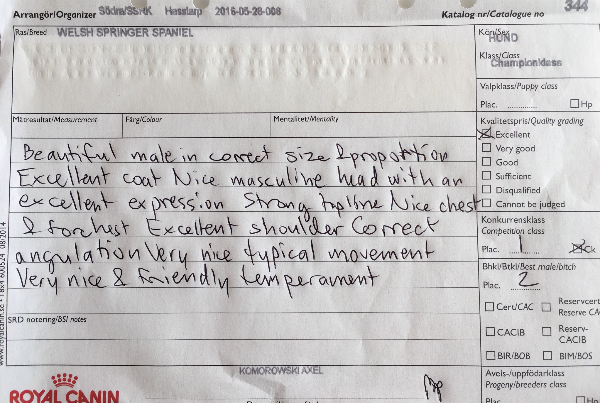 Arrangör/Organizer Södra/SSRK Hasslarp 2016-05-28-008
Katalog nr/Catalogue no 344
Ras/Breed WELSH SPRINGER SPANIEL
Kön/Sex
HUND
Klass/Class
Championklass
Valpklass/Puppy class
Plac. .......... Hp
Mätresultat/Measurement Färg/Colour Mentalitet/Mentality
Kvalitetspris/Quality grading
Excellent
Very good
Good
Sufficient
Disqualified
Cannot be judged
Beautiful male in correct size & propotion
Excellent coat Nice masculine head with an
excellent expression Strong topline Nice chest
& forchest Excellent shoulder Correct
angulation Very nice typical movement
Very nice & Friendly temperament
Konkurrensklass
Competition class
Plac. 1 Ck
Bhkl/Btkl/Best male/bitch
Plac. 2
Cert/CAC Reservcert
Reserve CA
CACIB Reserv-
CACIB
BIR/BOB BIM/BOS
SRD notering/BSI notes
www.royalcanin.se • TBRK 600524 08/2014
KOMOROWSKI AXEL
ROYAL CANIN
Avels-/uppfödarklass
Progeny/breeders class
Plac. Hp